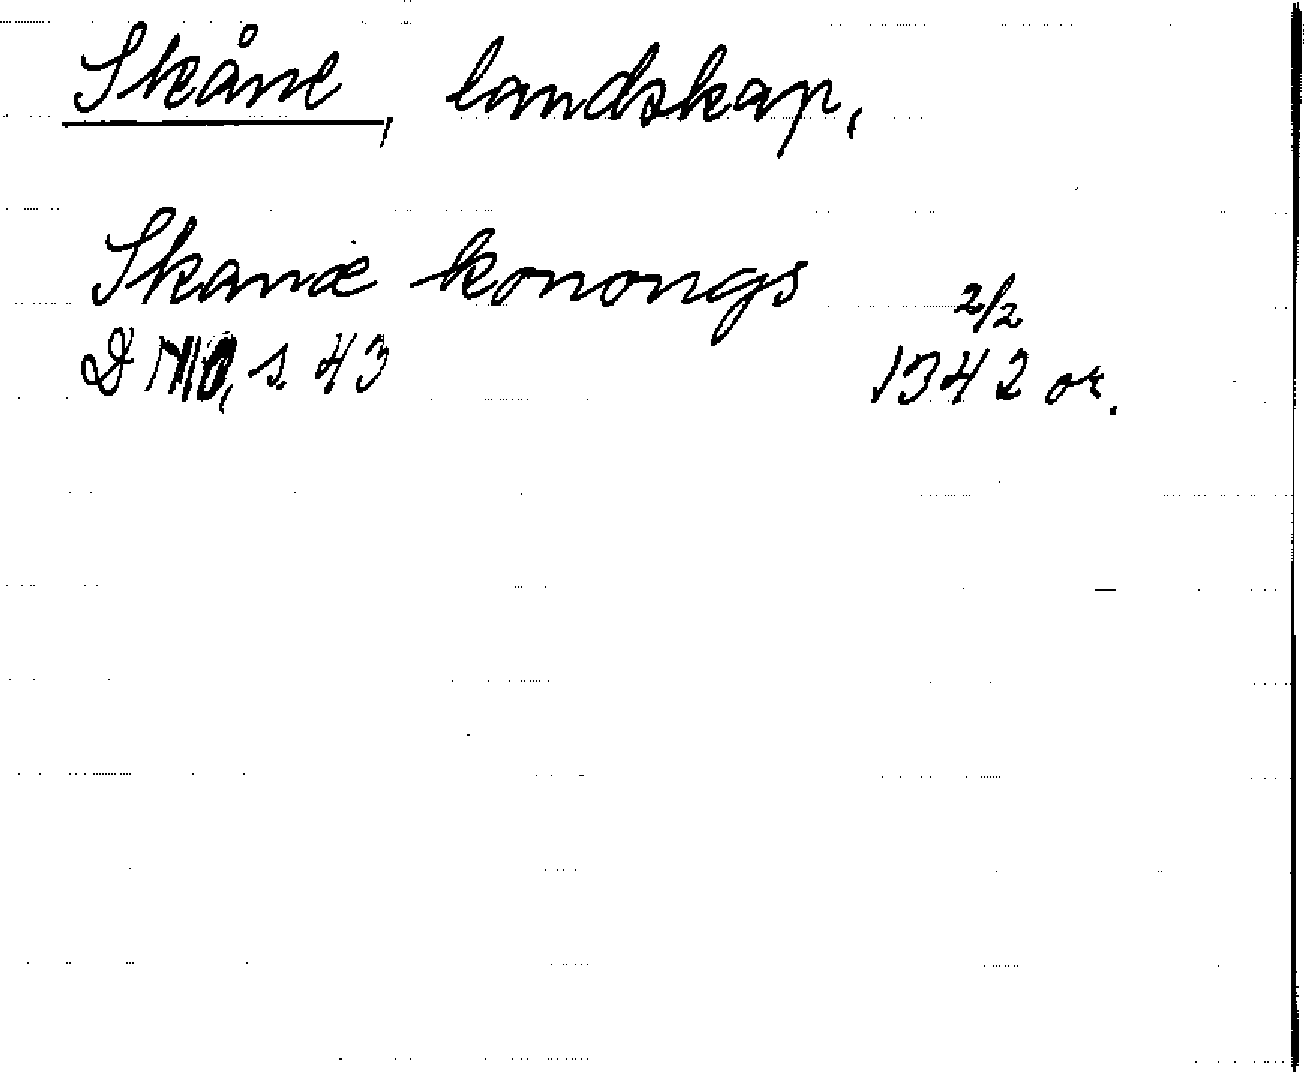 Skåne, landskap,
Skanæ konongs 2/2
D s 43 1342 or.